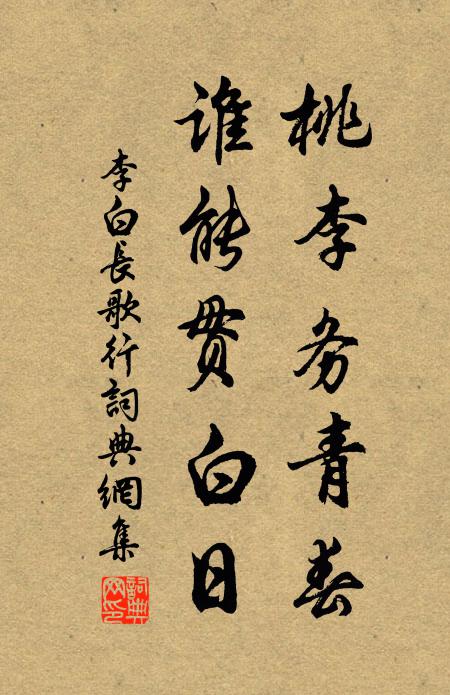 桃李务青春
谁能贯白日
李白長歌行詞典網集
詞典網印